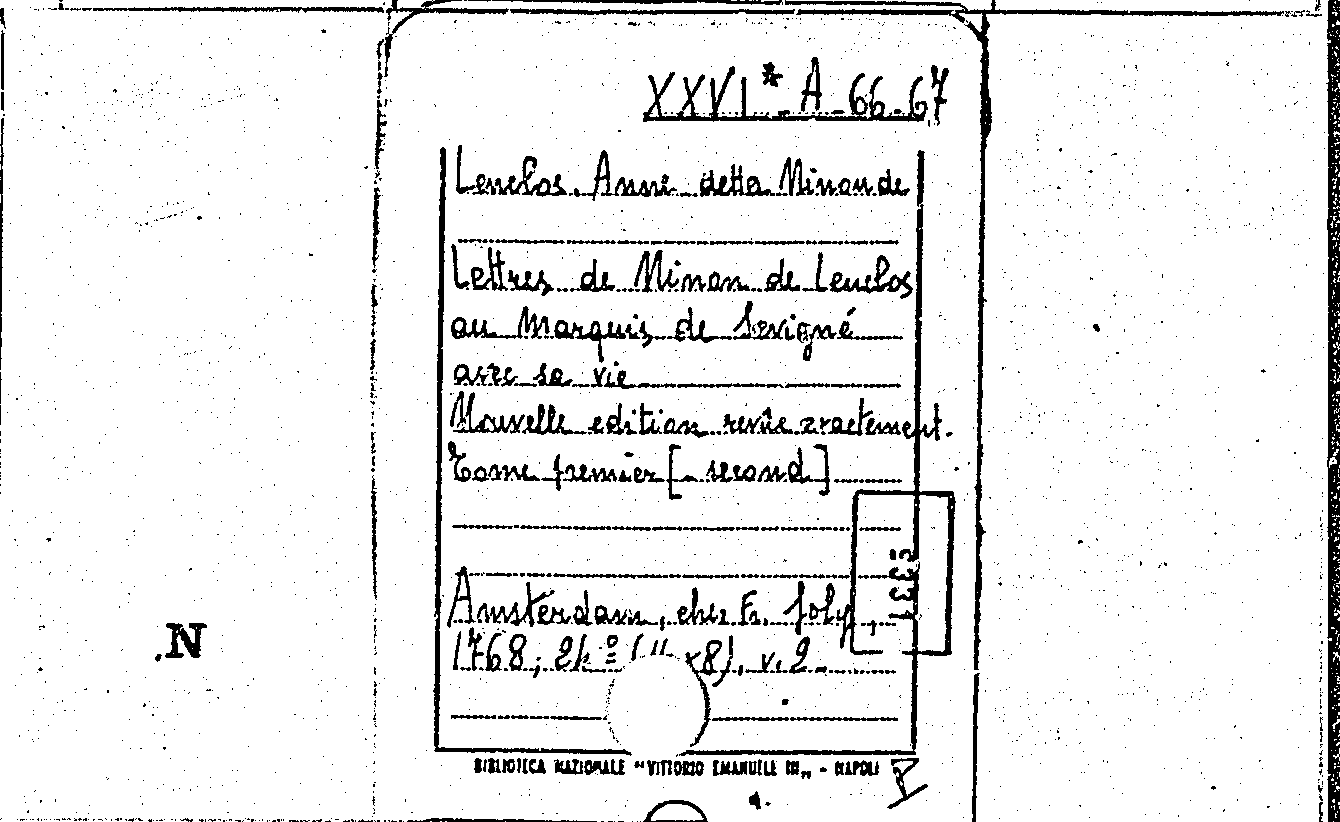 XXVI * A - 66-67
Lenclos, Anne detta Ninon de
Lettres de Ninon de Lenclos
au Marquis de Sevigné
avec sa vie
Nouvelle edition revûe exactement.
Tome premier [- second]
5331
Amsterdam, chez Fr. Joly,
1768; 24º ( x8), v. 2.
.N
BIBLIOTECA NAZIONALE "VITTORIO EMANUELE III„ - NAPOLI